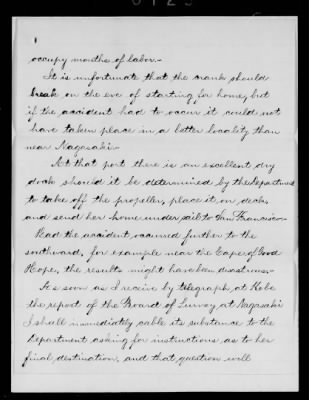 occupy months of labor.-
It is unfortunate that the crank should
break on the eve of starting for home, but
if the accident had to occur it could not
have taken place in a better locality than
near Nagasaki.-
At that port there is an excellent dry
dock should it be determined by the Department
to take off the propeller, place it on deck,
and send her home under sail to San Francisco.-
Had the accident occurred further to the
southward, for example near the Cape of Good
Hope, the results might have been disastrous.-
As soon as I receive by telegraph, at Kobe
the report of the Board of Survey, at Nagasaki
I shall immediately cable its substance to the
Department asking for instructions as to her
final destination, and that question will